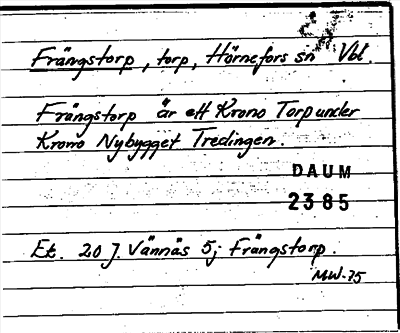 Frängstorp, torp, Hörnefors sn Vbl.
Frängstorp är ett Krono Torp under
Krono Nybygget Tredingen.
DAUM
2385
Et. 20 J. Vännäs 5; Frängstorp.
MW-75